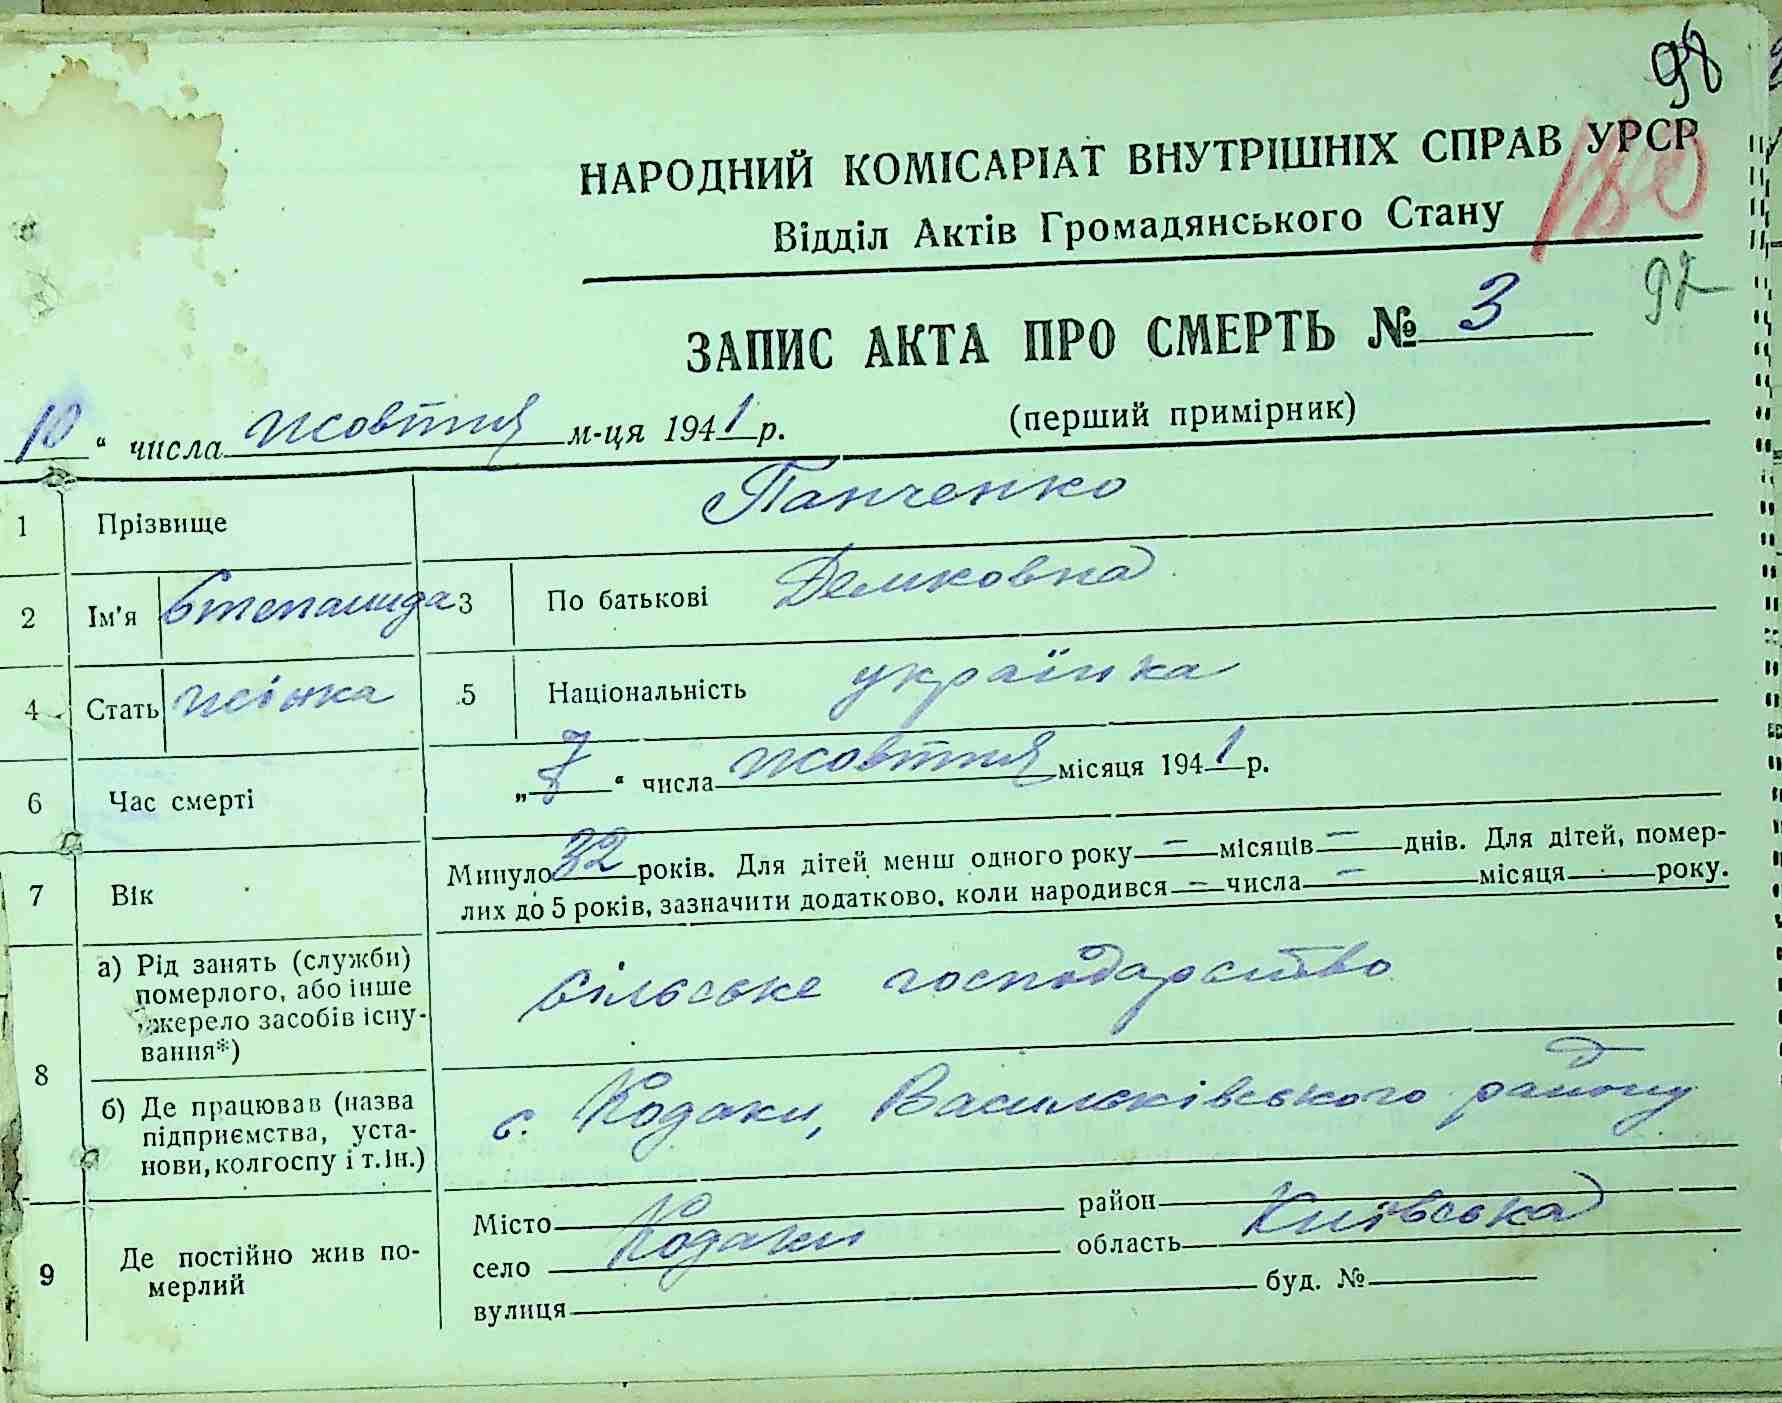 98
НАРОДНИЙ КОМІСАРІАТ ВНУТРІШНІХ СПРАВ УРСР
Відділ Актів Громадянського Стану
180
92
ЗАПИС АКТА ПРО СМЕРТЬ № 3
10 “ числа жовтня м-ця 1941 р. (перший примірник)
1 Прізвище Панченко
2 Ім'я Степанида 3 По батькові Демковна
4 Стать жінка 5 Національність українка
6 Час смерті „ 7 “ числа жовтня місяця 1941 р.
7 Вік Минуло 32 років. Для дітей менш одного року — місяців — днів. Для дітей, помер-
лих до 5 років, зазначити додатково, коли народився — числа — місяця року.
8 а) Рід занять (служби)
померлого, або інше
джерело засобів існу-
вання*)
сільське господарство
б) Де працював (назва
підприємства, уста-
нови, колгоспу і т. ін.)
с. Кодаки, Васильківського району
9 Де постійно жив по-
мерлий
Місто район
село Кодаки область Київська
вулиця буд. №